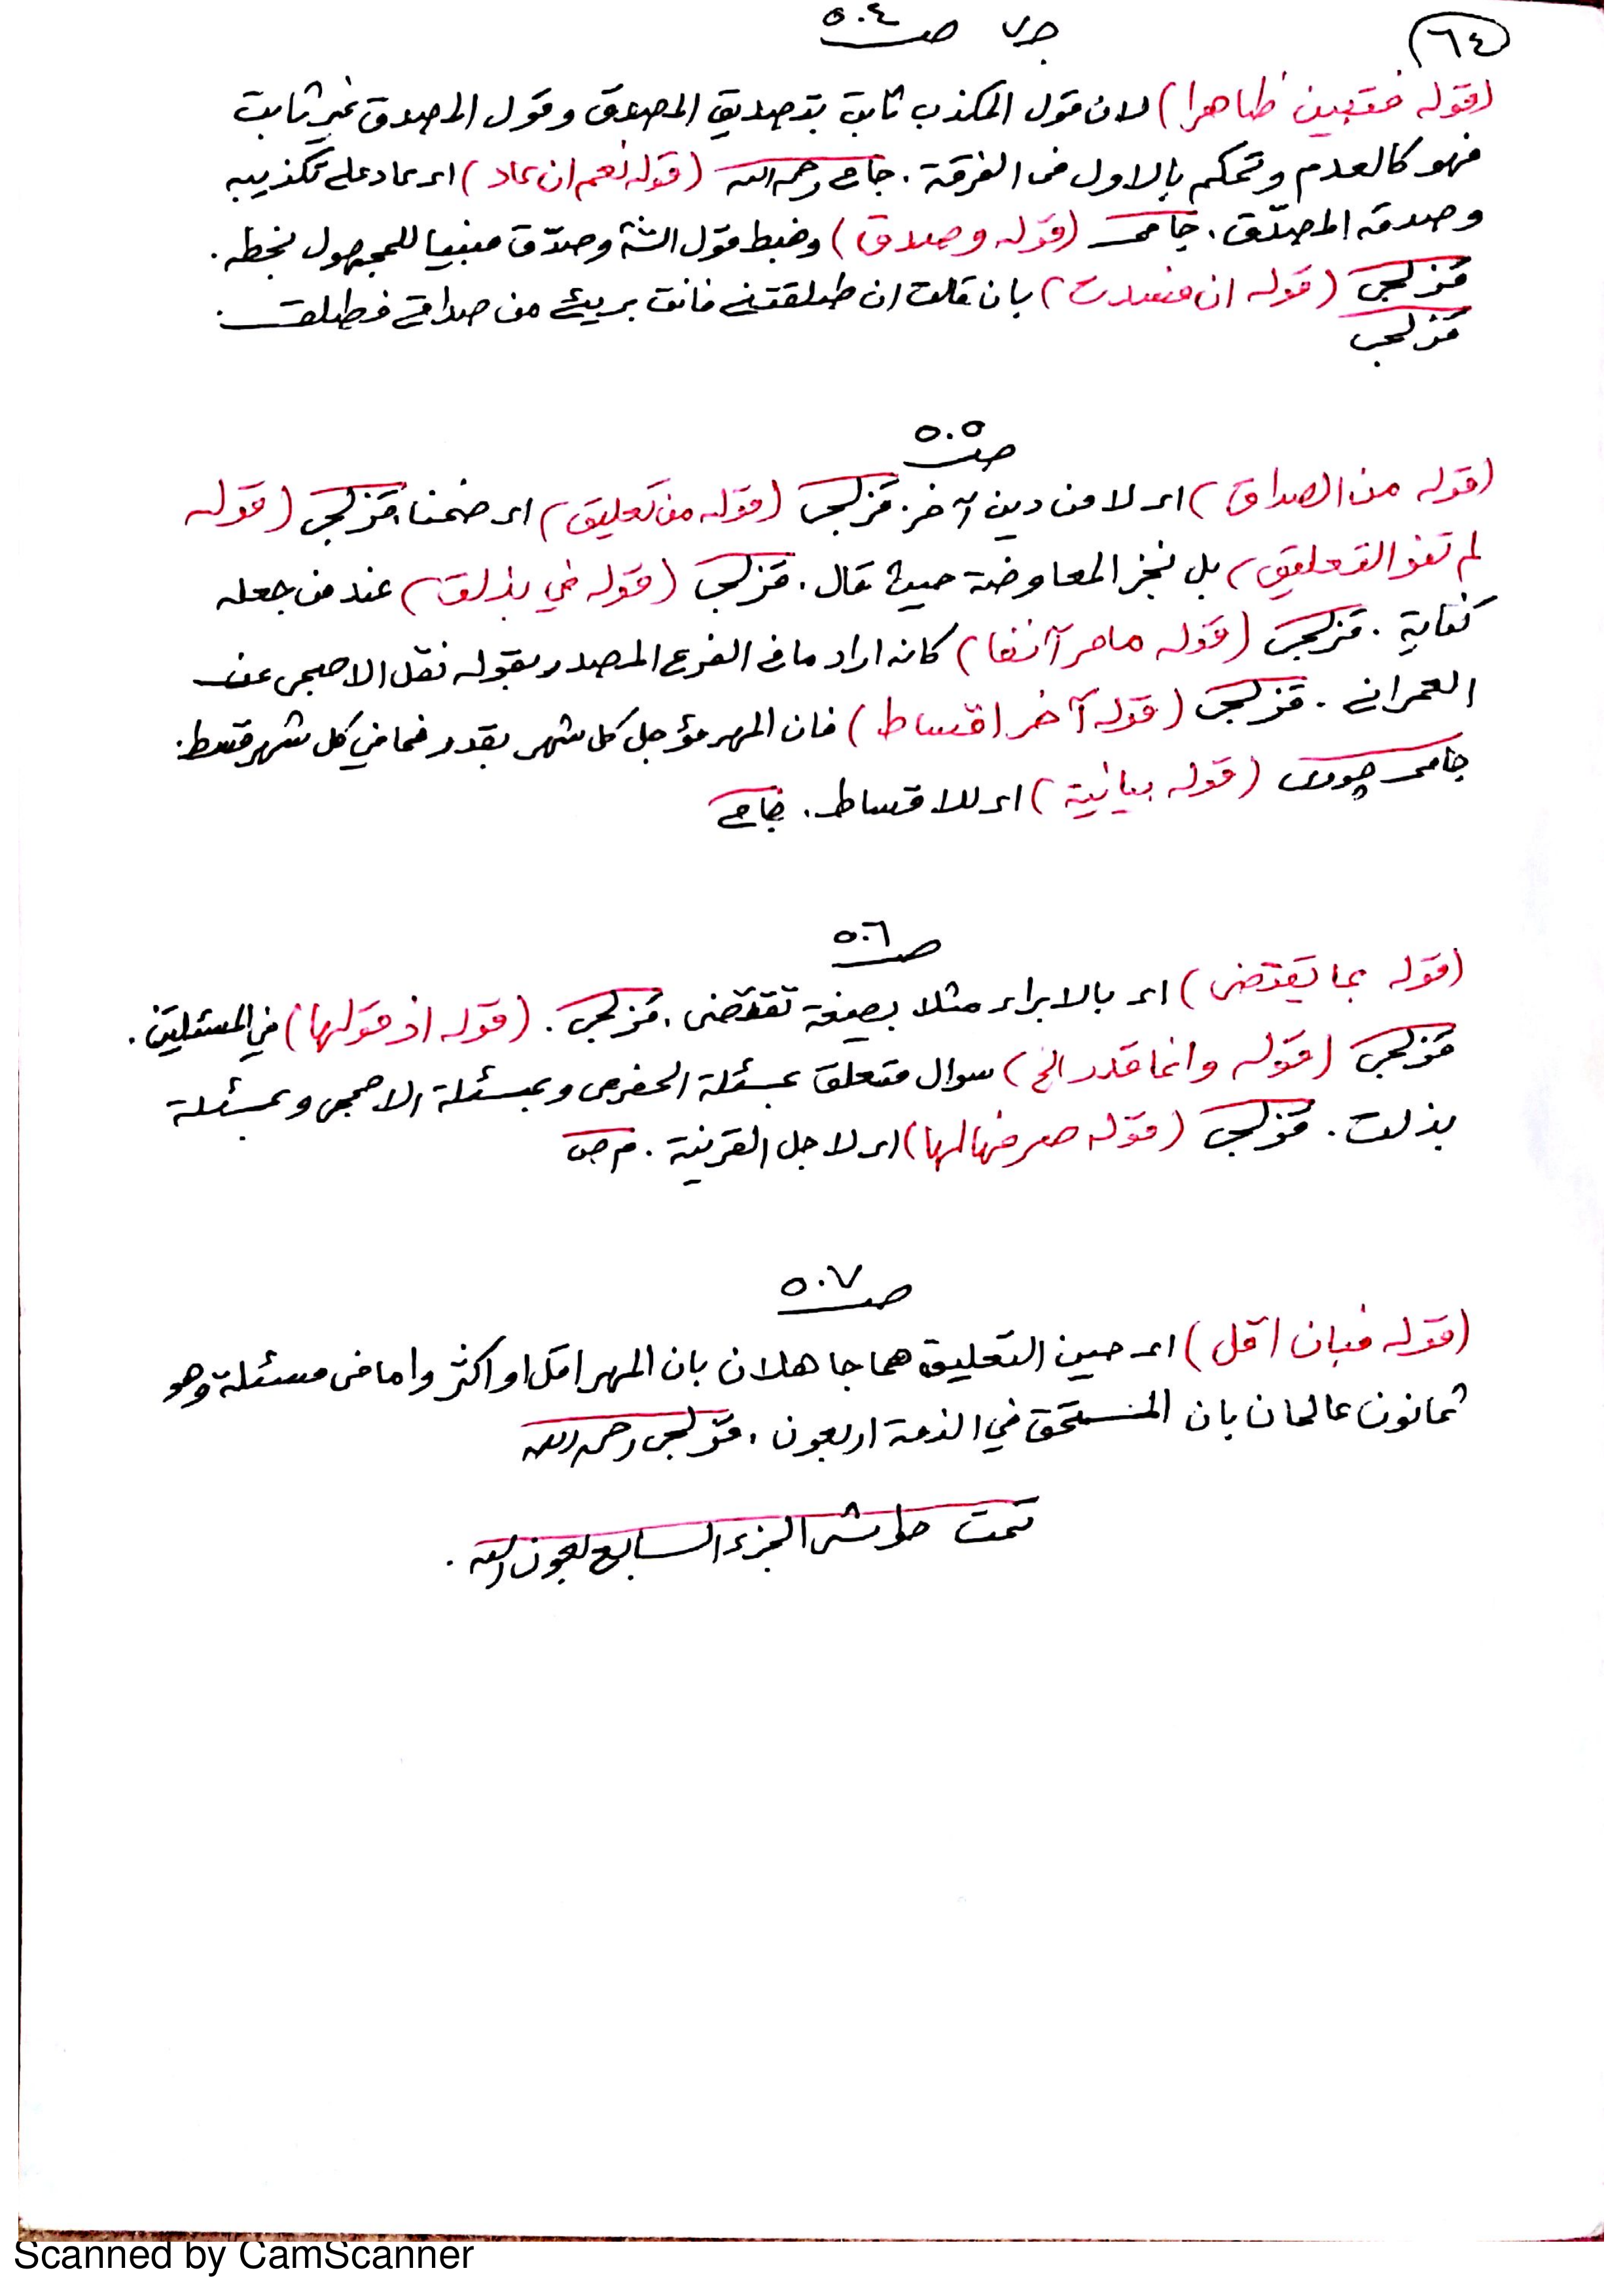 ٦٤
ج٧ صـ ٥٠٤
(قوله فتبين ظاهرا) لان قول المكذب ثابت بتصديق المصدق وقول المصدق غير ثابت
فهو كالعدم وتحكم بالاول فى الفرقة . جامى رحمه الله (قوله نعم ان عاد) اى عاد على تكذيبه
وصدقه المصدّق . جامى (قوله وصدق) وضبط قول الشة وصدّق مبنيا للمجهول بخطه .
قزلجى (قوله ان فسدت) بان قالت ان طلقتنى فانت بريئ من صداقى فطلقت .
قزلجى
صـ ٥٠٥
(قوله من الصداق) اى لا من دين آخر . قزلجى (قوله من تعليق) اى ضمنا . قزلجى (قوله
لم تنو التعليق) بل نجز المعاوضة حيث قال . قزلجى (قوله في بذلت) عند من جعله
كناية . قزلجى (قوله مامر آنفا) كانه اراد ما فى الفرع المصدر بقوله نقل الاصبحى عن
العمرانى . قزلجى (قوله آخر اقساط) فان المهر مؤجل كل شهر بقدر فما في كل شهر قسط .
جامى چورى (قوله بيانية) اى للاقساط . جامى
صـ ٥٠٦
(قوله بما يقتضى) اى بالابراء مثلا بصيغة تقتضى . قزلجى . (قوله اذ قولها) في المسئلتين .
قزلجى (قوله وانما قدر الخ) سوال متعلق بمسئلة الحضرمى وبمسئلة الاصبحى وبمسئلة
بذلت . قزلجى (قوله صرفها لها) اى لاجل القرينة . م ص
صـ ٥٠٧
(قوله فبان اقل) اى حين التعليق هما جاهلان بان المهر اقل او اكثر واما فى مسئلة وهو
ثمانون عالمان بان المستحق في الذمة اربعون . قزلجى رحمه الله
تمت حواشى الجزء السابع بعون الله .
Scanned by CamScanner